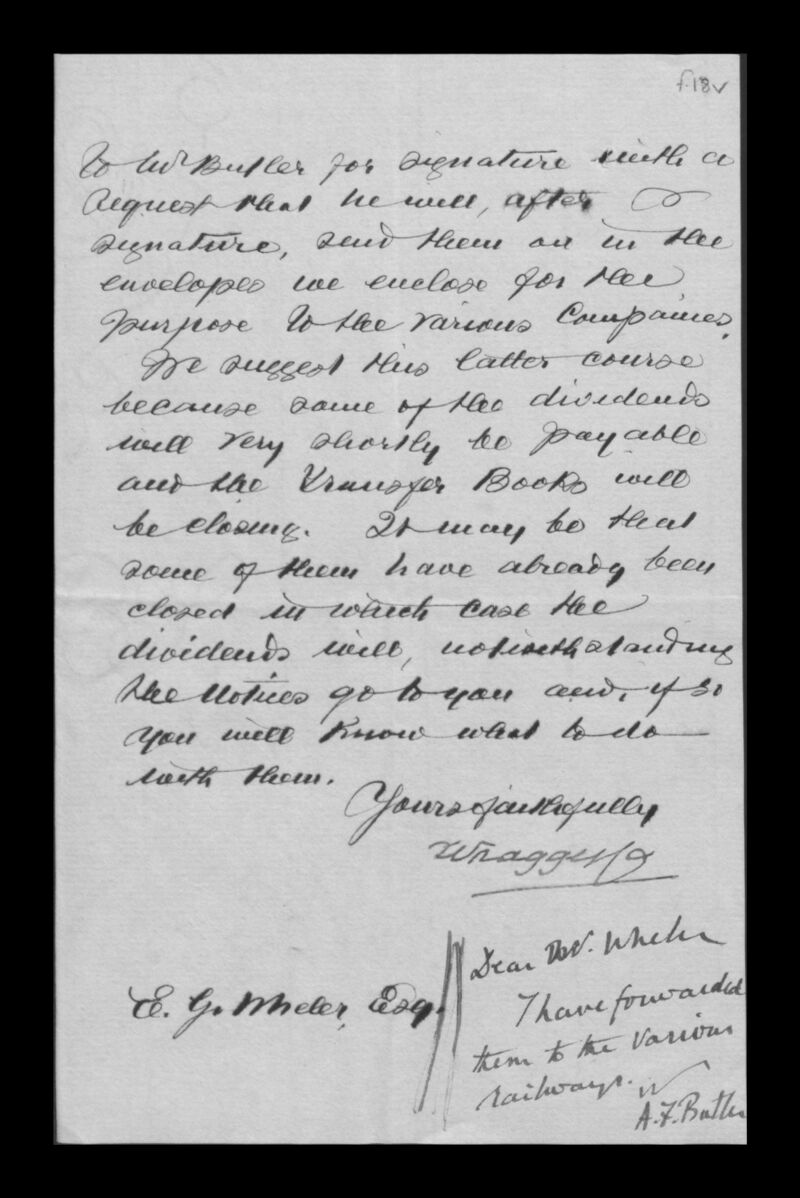 f.18v
to Mr Butler for signature with a
request that he will, after
signature, send them on in the
envelopes we enclose for the
purpose to the various Companies.
We suggest this latter course
because some of the dividends
will very shortly be payable
and the Transfer Books will
be closing. It may be that
some of them have already been
closed in which case the
dividends will, notwithstanding
the Notices go to you and, if so
you will know what to do
with them.
Yours faithfully
Wragge & Co
E. G. Wheler, Esq.
Dear Mr. Wheler
I have forwarded
them to the various
railways.
A.F. Butler